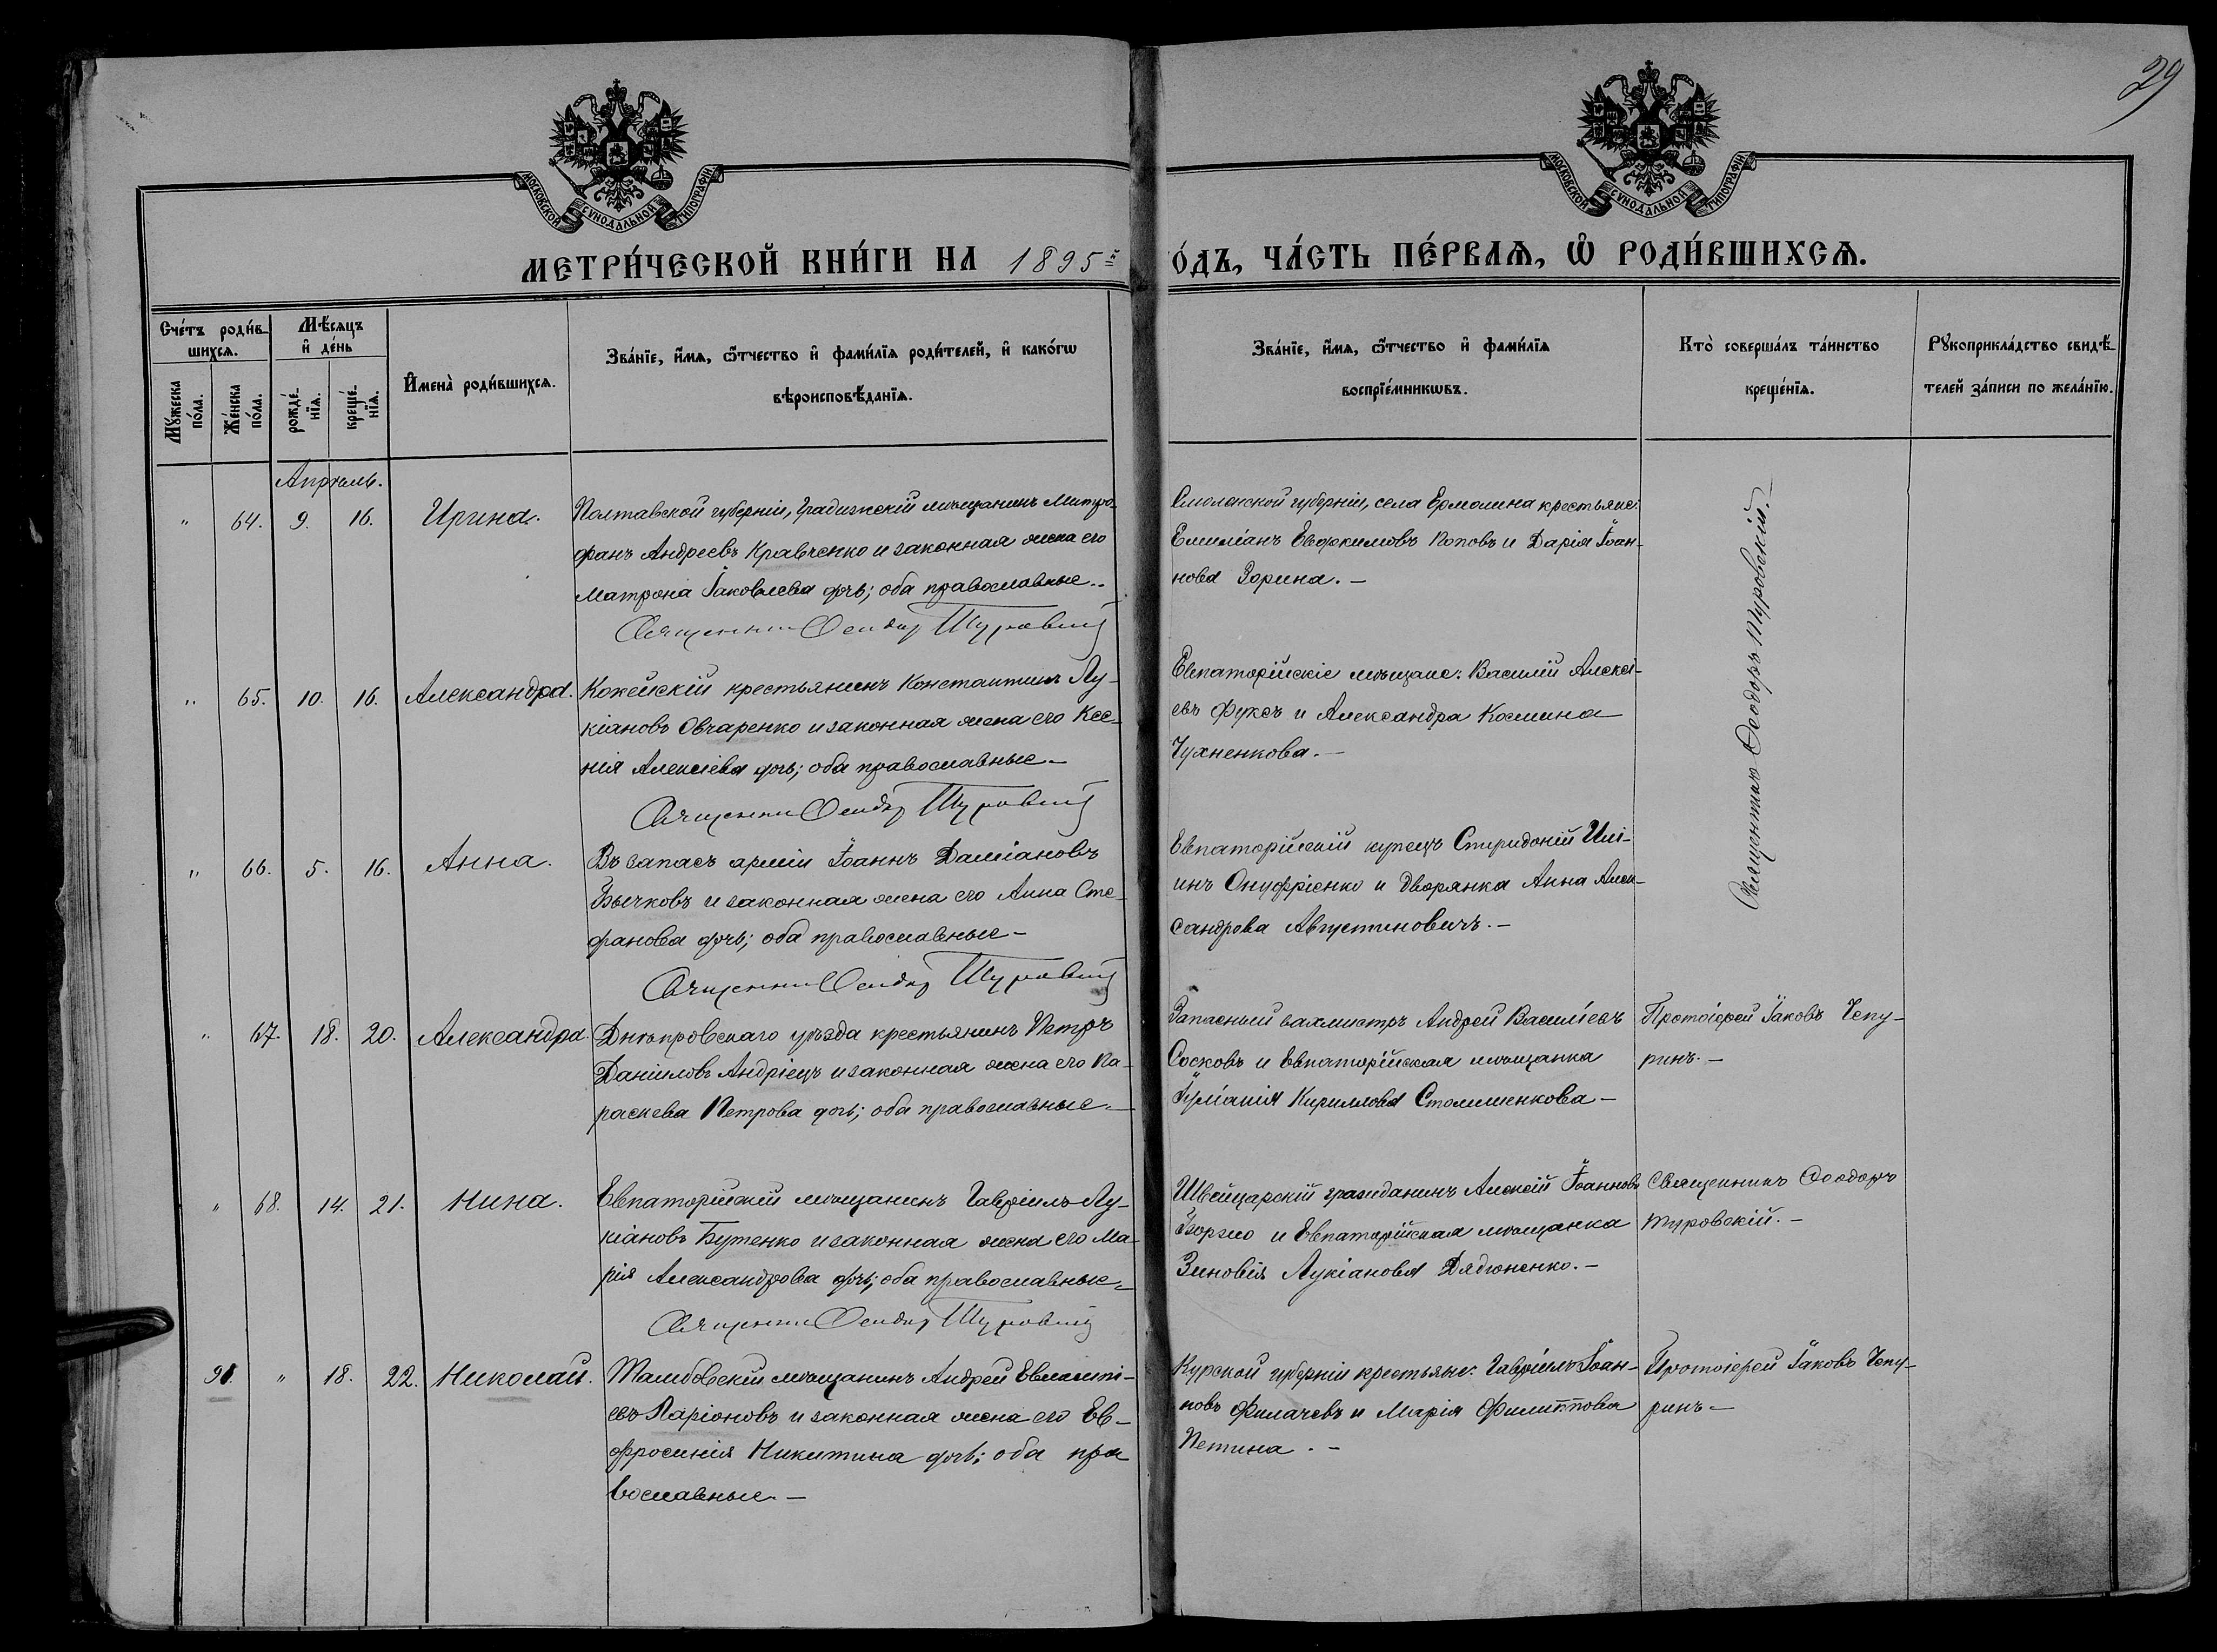 29
МОСКОВСКОЙ СѴНОДАЛЬНОЙ ТИПОГРАФІИ
МОСКОВСКОЙ СѴНОДАЛЬНОЙ ТИПОГРАФІИ
МЕТРИ́ЧЕСКОЙ КНИ́ГИ НА 1895й
О́ДЪ, ЧА́СТЬ ПЕ́РВАѦ, Ѿ РОДИ́ВШИХСѦ.
Сче́тъ роди́в-
шихсѧ.
Мѣ́сѧцъ
и҆ де́нь
Мꙋ́жеска
по́ла.
Же́нска
по́ла.
рожде́-
нїѧ.
креще́-
нїѧ.
И҆мена̀ роди́вшихсѧ.
Зва́нїе, и҆́мѧ, ѻ҆́тчество и҆ фами́лїѧ роди́телей, и҆ како́гѡ
вѣроисповѣ́данїѧ.
Зва́нїе, и҆́мѧ, ѻ҆́тчество и҆ фами́лїѧ
воспрїе́мникѡвъ.
Кто̀ соверша́лъ та́инство
креще́нїѧ.
Рꙋкоприкла́дство свидѣ́-
телей за́писи по жела́нїю.
Апрѣль.
" 64. 9. 16. Ирина.
Полтавской губерніи, Градижскій мѣщанинъ Митро-
фанъ Андреевъ Кравченко и законная жена его
Матрона Іаковлева дочь; оба православные.-
Священникъ Ѳеодоръ Туровскій
Смоленской губерніи, села Ермолина крестьяне:
Емиліанъ Евфкимовъ Поповъ и Дарія Іоан-
нова Зорина.-
Священникъ Ѳеодоръ Туровскій.-
" 65. 10. 16. Александра.
Кожейскій крестьянинъ Константинъ Лу-
кіановъ Овчаренко и законная жена его Ксе-
нія Алексіева дочь; оба православные-
Священникъ Ѳеодоръ Туровскій
Евпаторійскіе мѣщане: Василій Алексі-
евъ Фуксъ и Александра Космина
Чухненкова.-
" 66. 5. 16. Анна.
Въ запасѣ арміи Іоаннъ Даміановъ
Бычковъ и законная жена его Анна Сте-
фанова дочь; оба православные-
Священникъ Ѳеодоръ Туровскій
Евпаторійскій купецъ Спиридоній Илі-
инъ Онуфріенко и дворянка Анна Алек-
сандрова Августиновичъ.-
" 67. 18. 20. Александра.
Днѣпровскаго уѣзда крестьянинъ Петръ
Даніиловъ Андріецъ и законная жена его Па-
раскева Петрова дочь; оба православные-
Запасный вахмистръ Андрей Василіевъ
Сосковъ и Евпаторійская мѣщанка
Іуліанія Кириллова Столишенкова-
Протоіерей Іаковъ Чепу-
ринъ.-
" 68. 14. 21. Нина.
Евпаторійскій мѣщанинъ Гавріилъ Лу-
кіановъ Бутенко и законная жена его Ма-
рія Александрова дочь; оба православные-
Священникъ Ѳеодоръ Туровскій
Швейцарскій гражданинъ Алексій Іоанновъ
и Евпаторійская мѣщанка
Зиновія Лукіанова Дядюненко.-
Священникъ Ѳеодоръ
Туровскій.-
98. " 18. 22. Николай.
Тамбовскій мѣщанинъ Андрей Евлампі-
евъ Ларіоновъ и законная жена его Ев-
фросинія Никитина дочь; оба пра
вославные.-
Курской губерніи крестьяне: Гавріилъ Іоан-
новъ Филачевъ и Марія Филиппова
Петина.-
Протоіерей Іаковъ Чепу-
ринъ-